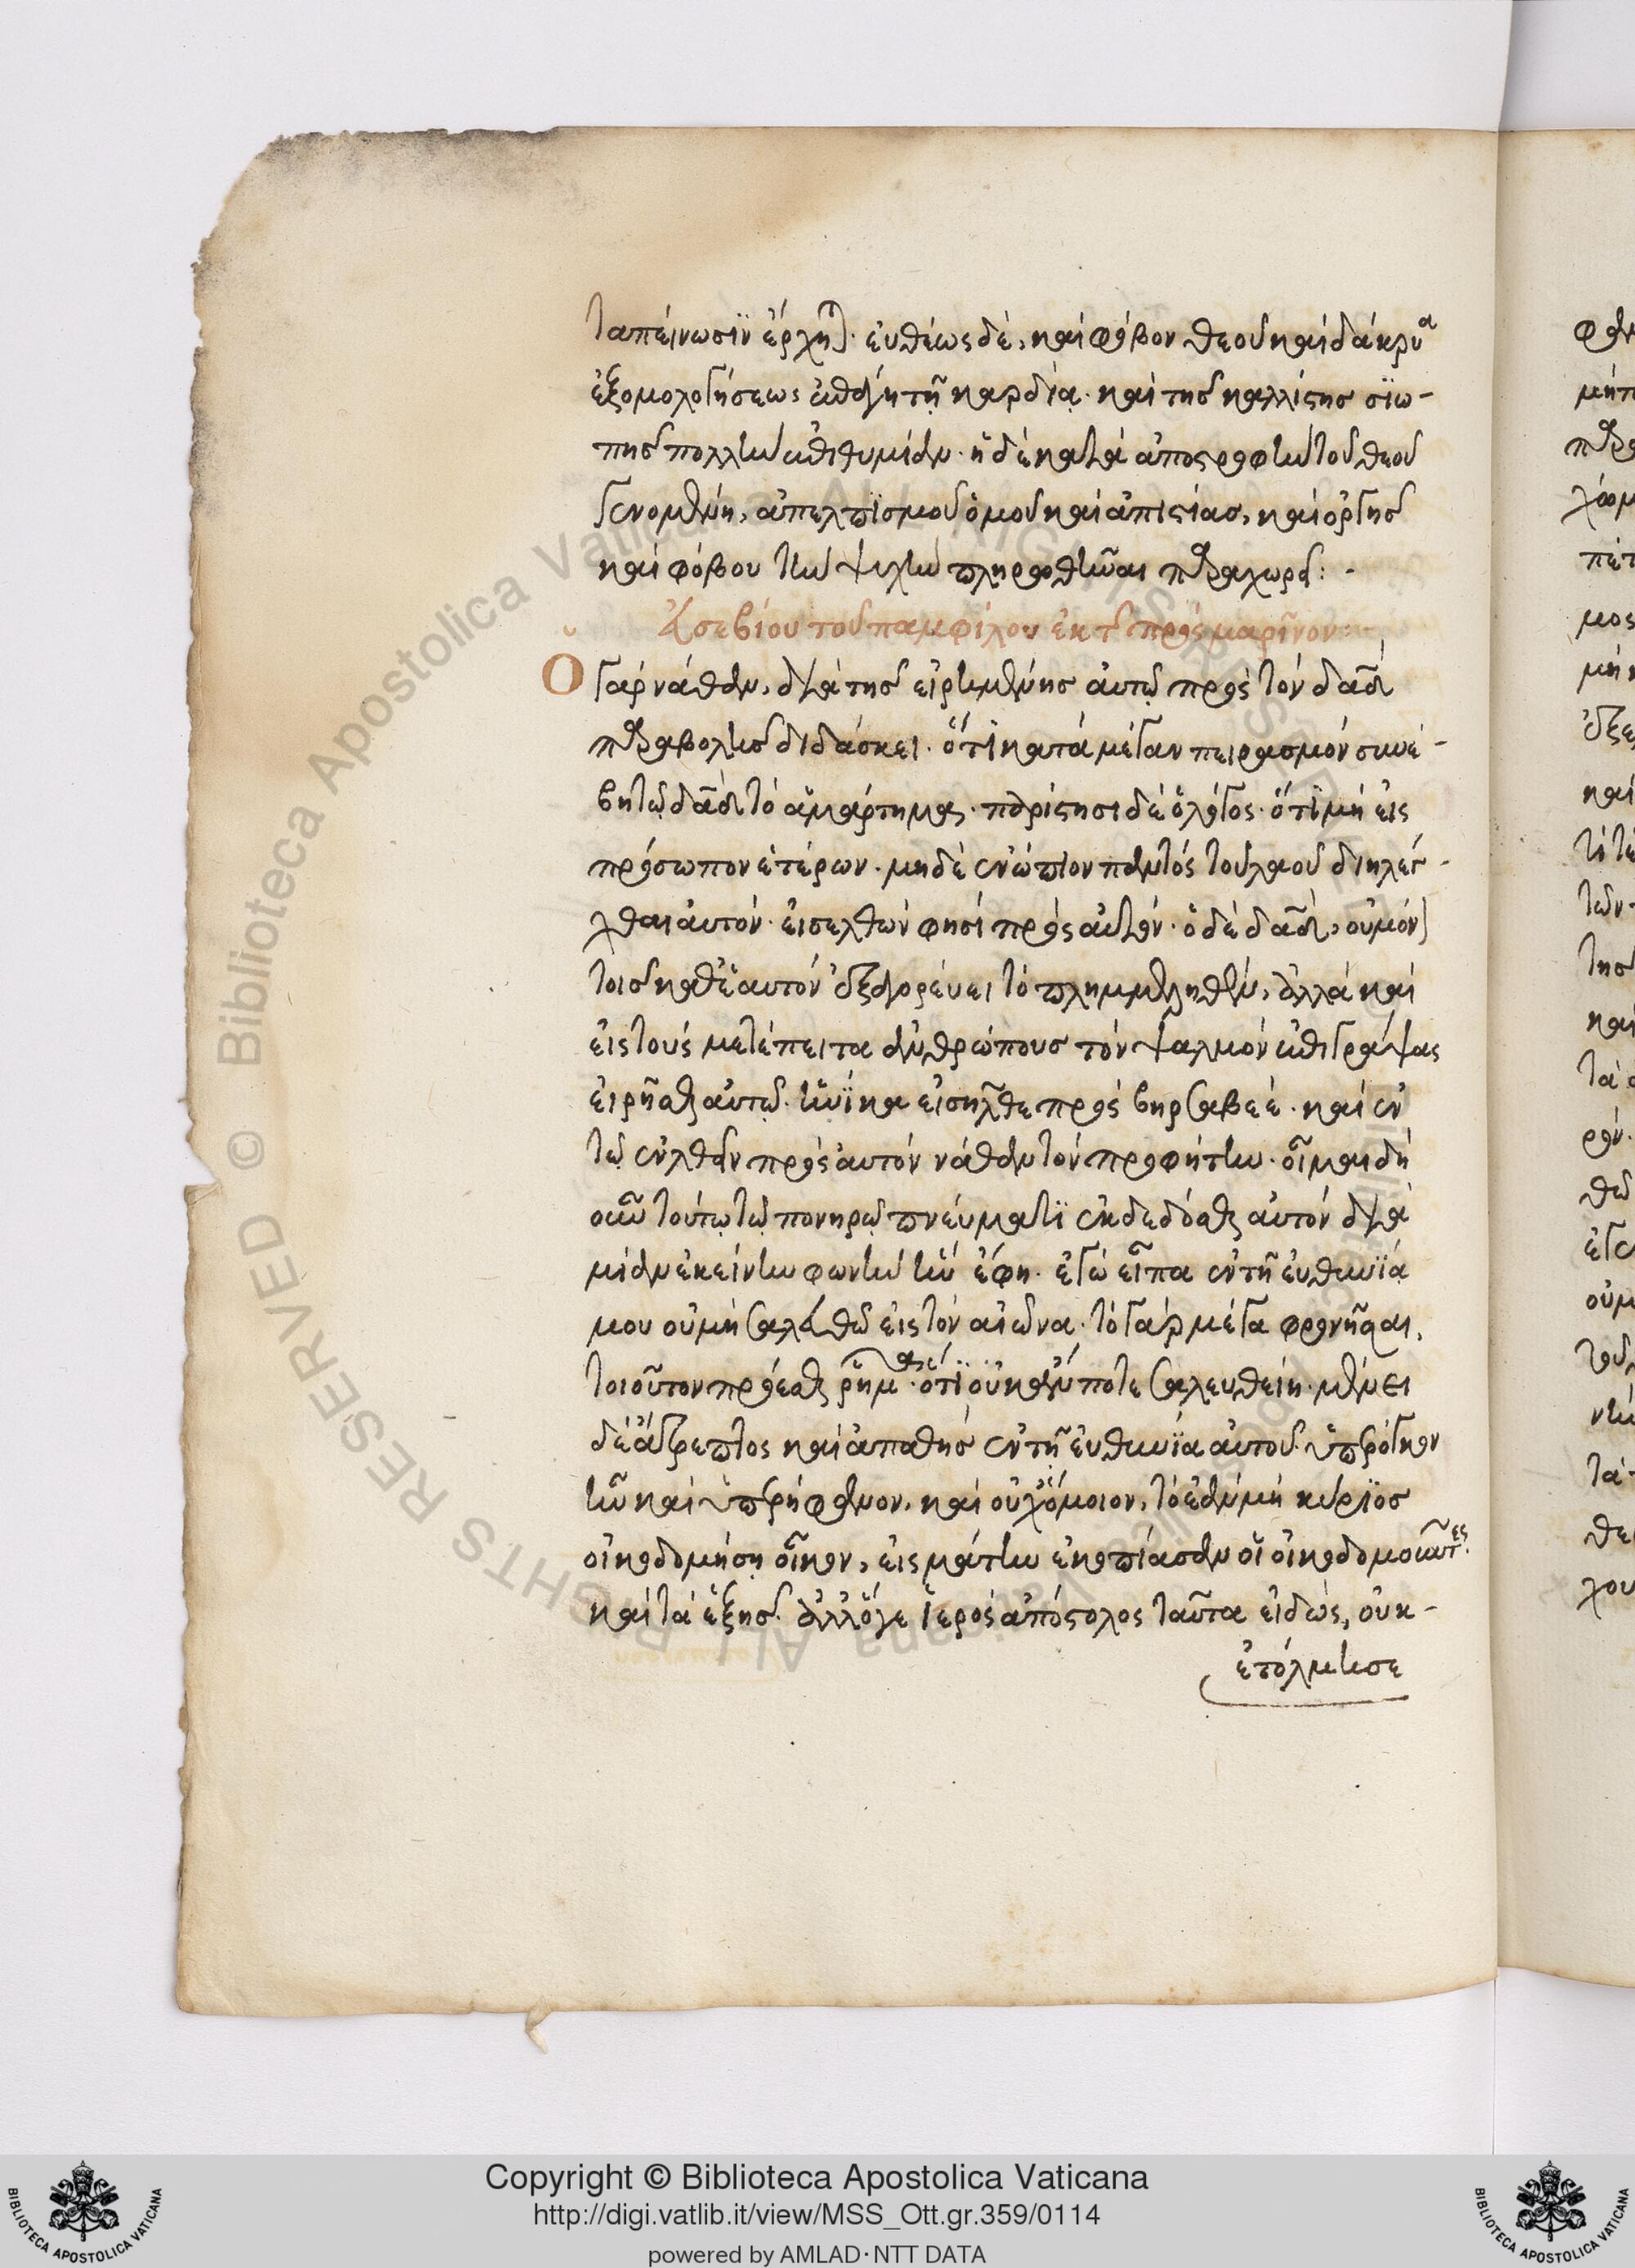 ταπείνωσϊν ἔρχηται· εὐθέως δὲ, καὶ φόβον θεοῦ καὶ δάκρυα
ἐξομολογήσεως ἐπάγη τῇ καρδίᾳ· καὶ τῆς καλλίστης σϊω-
πῆς πολλὴν ἐπιθυμίαν· ἡ δὲ κατὰ ἀποστροφὴν τοῦ θεοῦ
γενομένη, ἀπελπϊσμοῦ ὁμοῦ καὶ ἀπιστίας, καὶ ὀργῆς
καὶ φόβου τὴν ψυχὴν πληρωθῆναι παραχωρεῖ:-
Εὐσεβίου τοῦ παμφίλου ἐκ τῶν πρὸς μαρῖνον:
Ὁ γὰρ νάθαν, διὰ τῆς εἰρημένης αὐτῷ πρὸς τὸν δαδ
παραβολῆς διδάσκει· ὅτϊ κατὰ μέγαν πειρασμὸν συνέ-
βη τῷ δαδ τὸ ἁμάρτημα· παρίστησι δὲ ὁ λόγος· ὅτϊ μὴ εἰς
πρόσωπον ἑτέρων· μηδὲ ἐνώπϊον παντὸς τοῦ λαοῦ διηλέγ-
χθαι αὐτόν· εἰσελθὼν φησὶ πρὸς αὐτόν· ὁ δὲ δαδ, οὐ μόνον
τοῖς καθ' ἑαυτὸν ἐξαγορεύει τὸ πλημμεληθὲν, ἀλλὰ καὶ
εἰς τοὺς μετέπειτα ἀνθρώπους τὸν ψαλμὸν ἐπιγράψας
εἰρῆσθαι αὐτῷ· ἡνΐκα εἰσῆλθε πρὸς βηρσαβεέ· καὶ ἐν
τῷ ἐλθεῖν πρὸς αὐτὸν νάθαν τὸν προφήτην· οἶμαι δὴ
οὖν τούτῳ τῷ πονηρῷ πνεύματϊ ἐκδεδόσθαι αὐτὸν διὰ
μίαν ἐκείνην φωνὴν ἣν ἔφη· ἐγὼ εἶπα ἐν τῇ εὐθηνΐᾳ
μου οὐ μὴ σαλευθῶ εἰς τὸν αἰῶνα· τὸ γὰρ μέγα φρονῆσαι,
τοιοῦτον προέσθαι ῥῆμα· ὅτϊ οὐκ ἄν ποτε σαλευθείη· μένει
δὲ ἄτρεπτος καὶ ἀπαθὴς ἐν τῇ εὐθηνΐᾳ αὐτοῦ· ὑπέρογκον
ἦν καὶ ὑπερήφανον, καὶ οὐχ ὅμοιον, τὸ ἐὰν μὴ κύρϊος
οἰκοδομήσῃ οἶκον, εἰς μάτην ἐκοπίασαν οἱ οἰκοδομοῦντες·
καὶ τὰ ἑξῆς· ἀλλ' ὅγε ἱερὸς ἀπόστολος ταῦτα εἰδὼς, οὐκ-
ἐτόλμησε
Copyright © Biblioteca Apostolica Vaticana
http://digi.vatlib.it/view/MSS_Ott.gr.359/0114
powered by AMLAD·NTT DATA